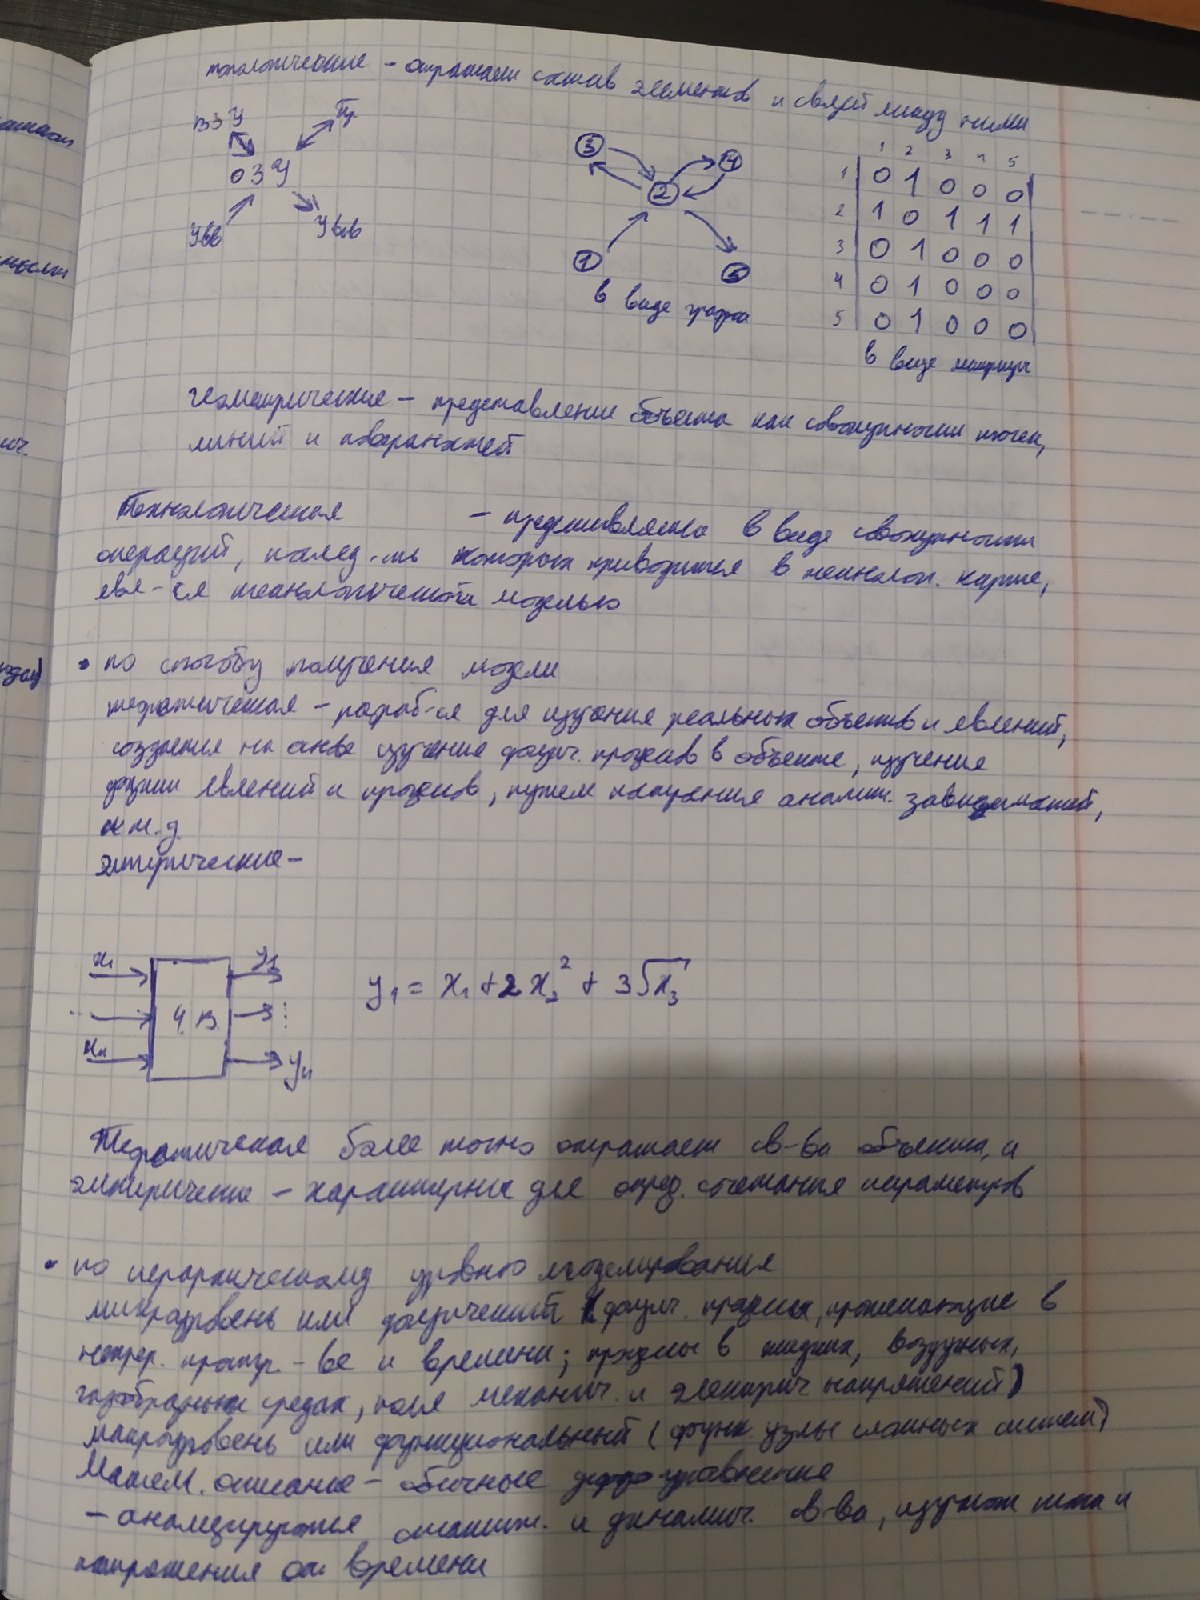 топологические – отражает состав элементов и связей между ними
ВЗУ
Пр
ОЗУ
Увв
Увыв
3
4
2
1
5
в виде графа
1 2 3 4 5
1 0 1 0 0 0
2 1 0 1 1 1
3 0 1 0 0 0
4 0 1 0 0 0
5 0 1 0 0 0
в виде матрицы
геометрические – представление объекта как совокупности точек,
линий и поверхностей
Технологическая – представляется в виде совокупности
операций, послед-ть которых приводится в технолог. карте,
явл-ся технологической моделью
• по способу получения модели
теоретическая – разраб-ся для изучения реальных объектов и явлений,
создание на основе изучения физич. процессов в объекте, изучение
физики явлений и процессов, путем получения аналит. зависимостей,
и т.д.
эмпирические –
x₁
...
xₙ
Ч.Я
y₁
⋮
yₙ
y₁ = x₁ + 2x₂² + 3√x₃
Теоретическая более точно отражает св-ва объекта, и
эмпирически – характерных для опред. сочетания параметров
• по иерархическому уровню моделирования
микроуровень или физический (физич. процессы, протекающие в
непрер. простр-ве и времени; процессы в жидких, воздушных,
газообразных средах, поля механич. и электрич напряжений)
макроуровень или функциональный (функ. узлы сложных систем)
Матем. описание – обычные дифф уравнения
– анализируются статич. и динамич. св-ва, изучают тока и
напряжения от времени